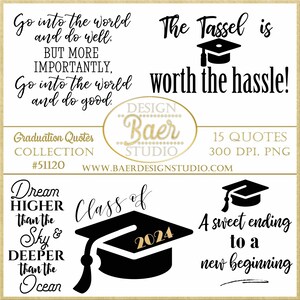 Go into the world
and do well.
BUT MORE
IMPORTANTLY,
Go into the world
and do good.
The Tassel is
worth the hassle!
Graduation Quotes
COLLECTION
#51120
DESIGN
Baer
STUDIO
15 QUOTES
300 DPI, PNG
WWW.BAERDESIGNSTUDIO.COM
Dream
HIGHER
than the
Sky &
DEEPER
than the
Ocean
Class of
2024
A sweet ending
to a
new beginning